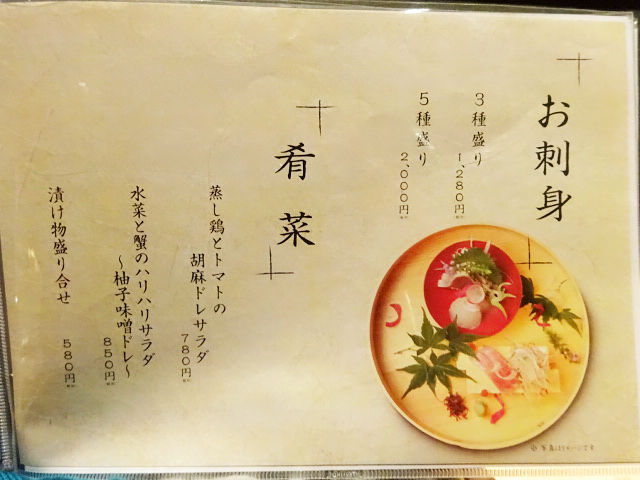 お刺身
3種盛り
1,280円
5種盛り
2,000円
肴菜
蒸し鶏とトマトの
胡麻ドレサラダ
780円
水菜と蟹のハリハリサラダ
～柚子味噌ドレ～
850円
漬け物盛り合せ
580円
※写真はイメージです